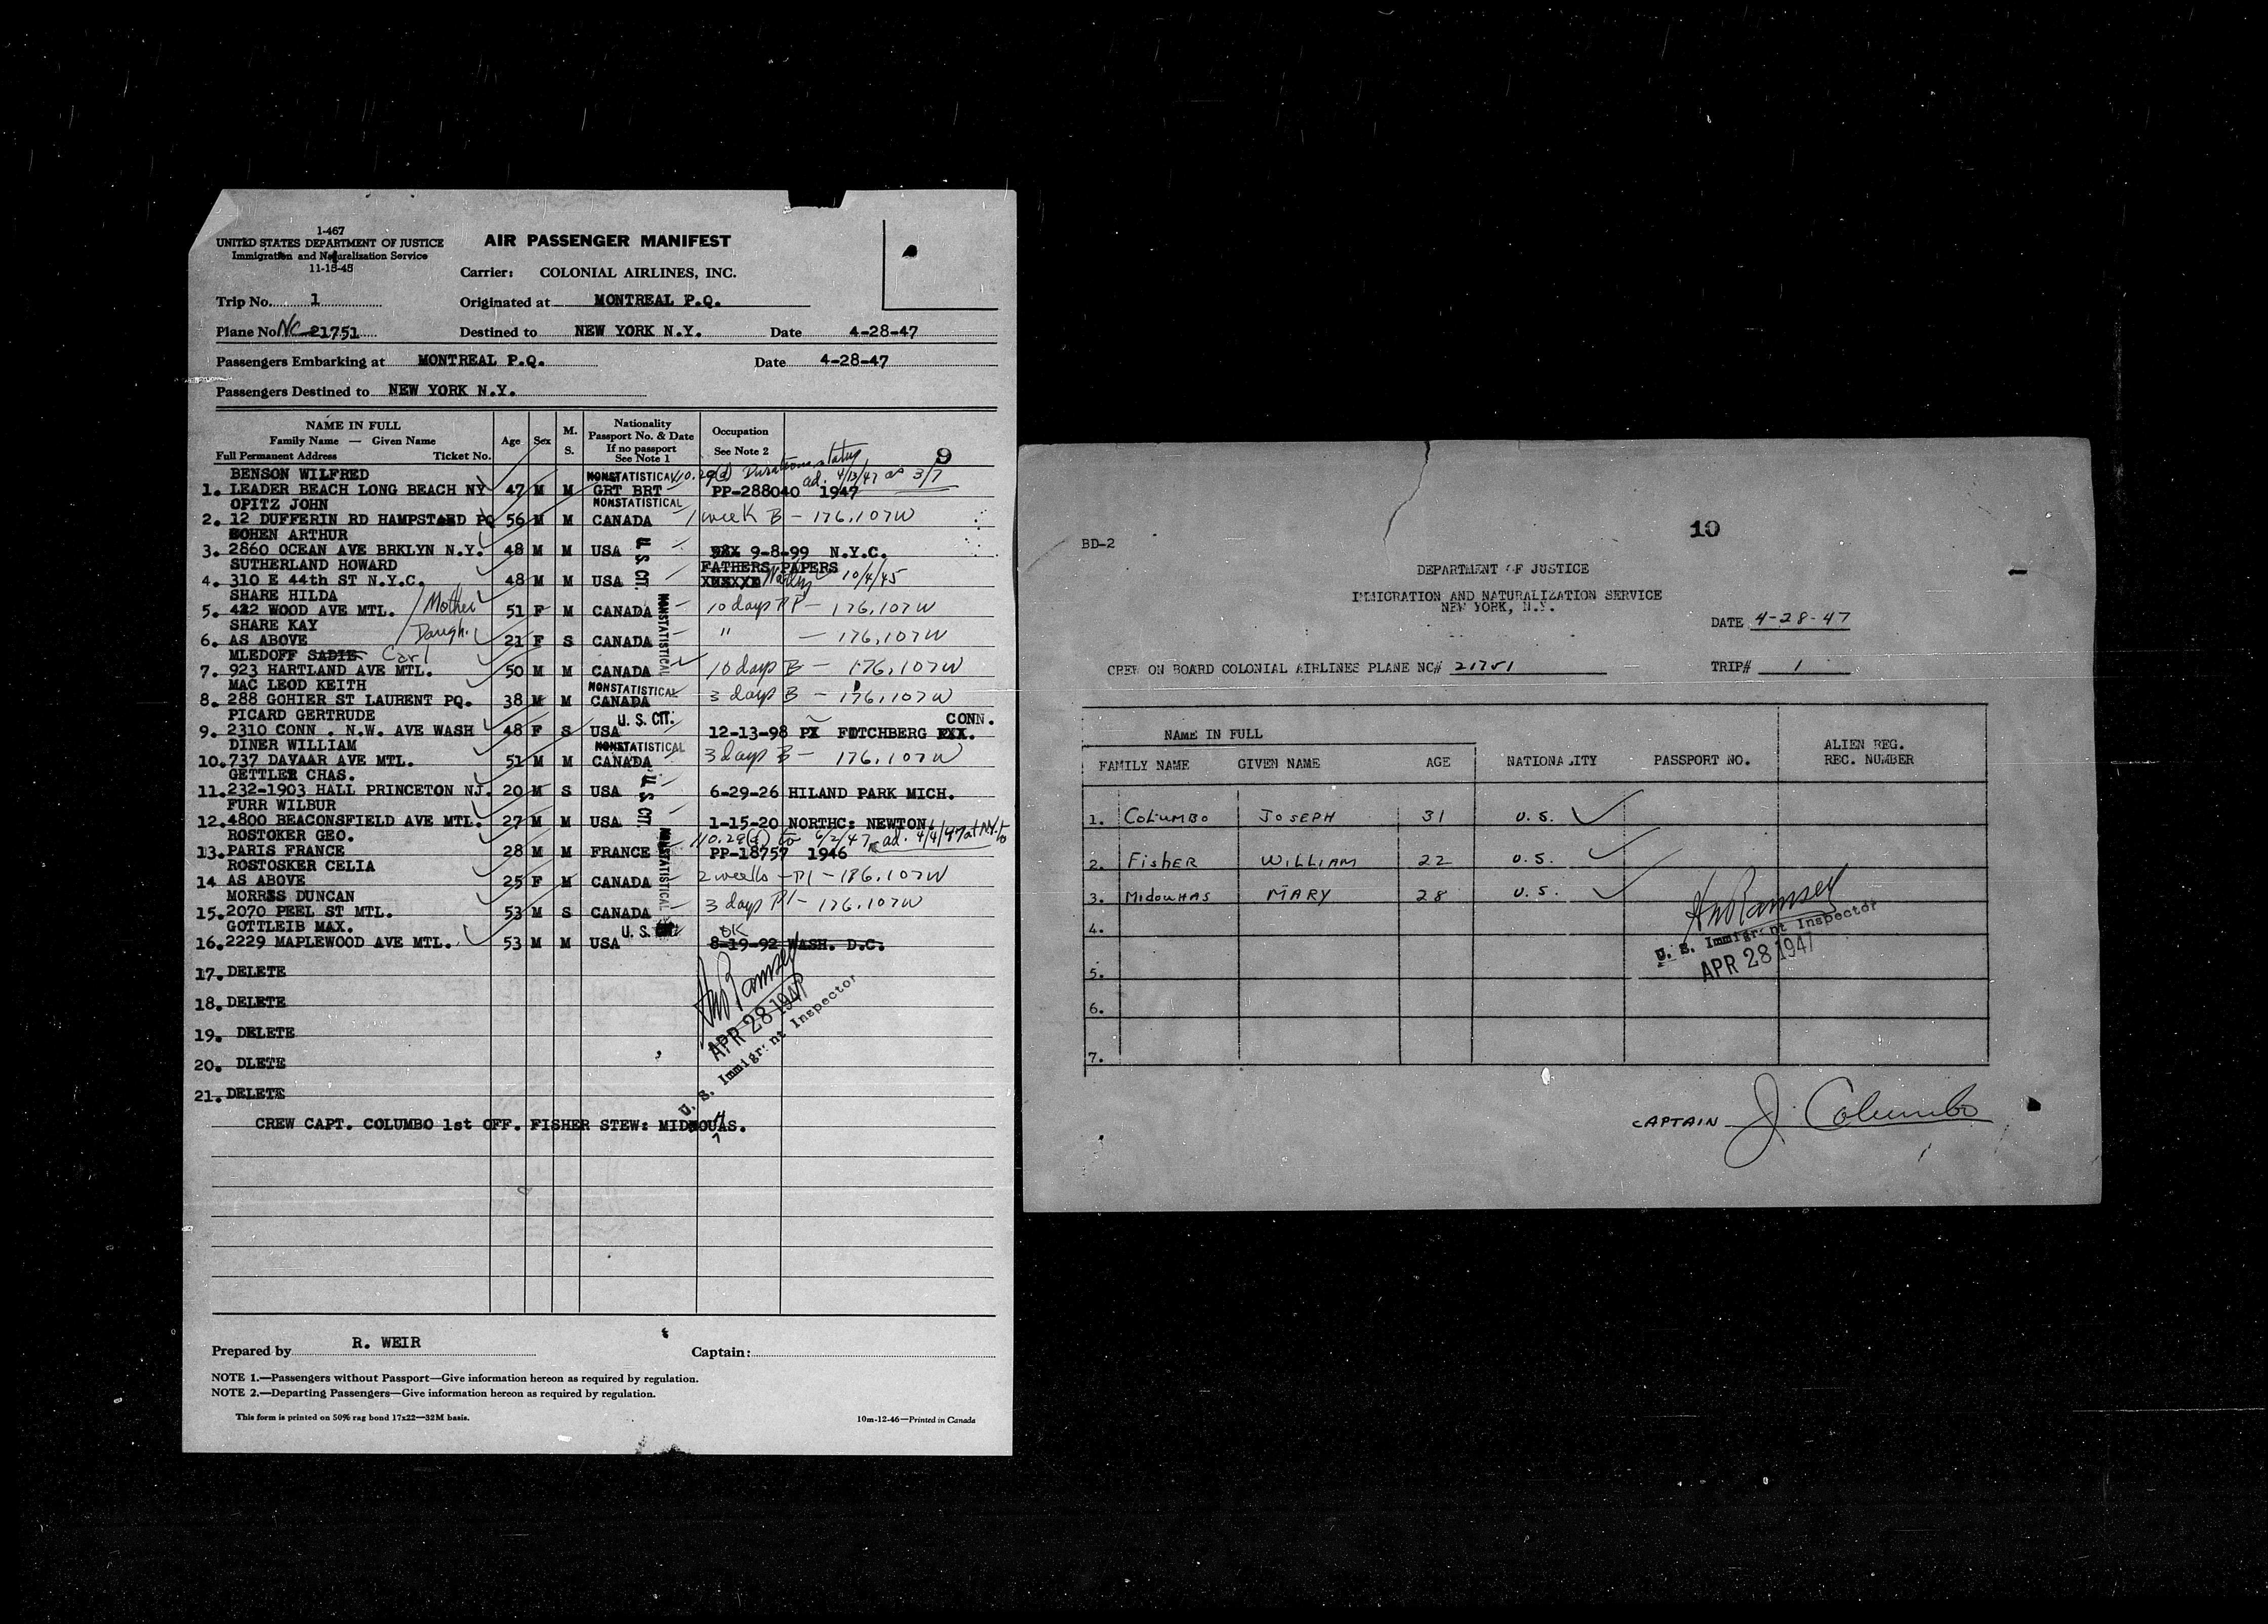 1-467
UNITED STATES DEPARTMENT OF JUSTICE
Immigration and Naturalization Service
11-15-45
AIR PASSENGER MANIFEST
Carrier: COLONIAL AIRLINES, INC.
Trip No. 1 Originated at MONTREAL P.Q.
Plane No NC 21751 Destined to NEW YORK N.Y. Date 4-28-47
Passengers Embarking at MONTREAL P.Q. Date 4-28-47
Passengers Destined to NEW YORK N.Y.
NAME IN FULL
Family Name — Given Name
Full Permanent Address Ticket No.
Age Sex M. S.
Nationality
Passport No. & Date
If no passport
See Note 1
Occupation
See Note 2
9
BENSON WILFRED NONSTATISTICAL 110.29(d) status ad. 4/13/47 as 3/7
1. LEADER BEACH LONG BEACH NY 47 M M GRT BRT PP-288040 1947
OPITZ JOHN NONSTATISTICAL
2. 12 DUFFERIN RD HAMPSTAED PQ 56 M M CANADA 1 week B - 176.107W
COHEN ARTHUR
3. 2860 OCEAN AVE BRKLYN N.Y. 48 M M USA U S CIT. 9-8-99 N.Y.C.
SUTHERLAND HOWARD FATHERS PAPERS
4. 310 E 44th ST N.Y.C. 48 M M USA 10/4/45
SHARE HILDA
5. 422 WOOD AVE MTL. / Mother 51 F M CANADA NONSTATISTICAL 10 days PP - 176.107W
SHARE KAY
6. AS ABOVE / Daugh. 21 F S CANADA " - 176.107W
MLEDOFF SADIE Carl
7. 923 HARTLAND AVE MTL. 50 M M CANADA 10 days B - 176.107W
MAC LEOD KEITH NONSTATISTICAL
8. 288 GOHIER ST LAURENT PQ. 38 M M CANADA 3 days B - 176.107W
PICARD GERTRUDE U. S. CIT. CONN.
9. 2310 CONN . N.W. AVE WASH 48 F S USA 12-13-98 PX FOTCHBERG XXX.
DINER WILLIAM NONSTATISTICAL
10. 737 DAVAAR AVE MTL. 51 M M CANADA 3 days B - 176.107W
GETTLER CHAS.
11. 232-1903 HALL PRINCETON NJ. 20 M S USA U S CIT. 6-29-26 HILAND PARK MICH.
FURR WILBUR
12. 4800 BEACONSFIELD AVE MTL. 27 M M USA 1-15-20 NORTHC: NEWTON
ROSTOKER GEO. 110.29(d) to 6/2/47 ad. 4/4/47 at N.Y.
13. PARIS FRANCE 28 M M FRANCE NONSTATISTICAL PP-18757 1946
ROSTOSKER CELIA
14 AS ABOVE 25 F M CANADA 2 weeks - Pl - 176.107W
MORRSS DUNCAN
15. 2070 PEEL ST MTL. 53 M S CANADA 3 days Pl - 176.107W
GOTTLEIB MAX. U. S. OK
16. 2229 MAPLEWOOD AVE MTL. 53 M M USA 8-19-92 WASH. D.C.
17. DELETE
18. DELETE
19. DELETE
20. DLETE
21. DELETE
Ramsey
APR 28 1947
U. S. Immigrant Inspector
CREW CAPT. COLUMBO 1st OFF. FISHER STEW: MIDWOUHAS.
Prepared by R. WEIR Captain:
NOTE 1.—Passengers without Passport—Give information hereon as required by regulation.
NOTE 2.—Departing Passengers—Give information hereon as required by regulation.
This form is printed on 50% rag bond 17x22—32M basis. 10m-12-46—Printed in Canada
10
BD-2
DEPARTMENT OF JUSTICE
IMMIGRATION AND NATURALIZATION SERVICE
NEW YORK, N.Y.
DATE 4-28-47
CREW ON BOARD COLONIAL AIRLINES PLANE NC# 21751 TRIP# 1
NAME IN FULL
FAMILY NAME GIVEN NAME AGE NATIONALITY PASSPORT NO. ALIEN REG.
REC. NUMBER
1. COLUMBO JOSEPH 31 U.S.
2. FISHER WILLIAM 22 U.S.
3. MIDOUHAS MARY 28 U.S.
4.
5.
6.
7.
Ramsey
U. S. Immigrant Inspector
APR 28 1947
CAPTAIN J. Columbo